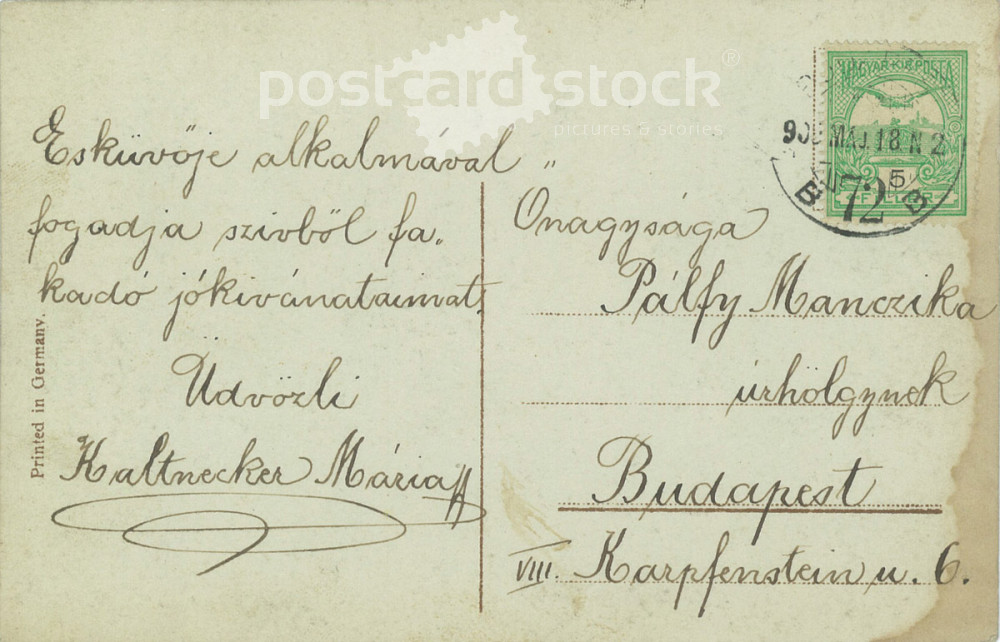 postcard stock®
pictures & stories
Esküvője alkalmával
fogadja szivből fa-
kadó jókivánataimat.
Üdvözli
Kaltnecker Mária
Printed in Germany.
MAGYAR KIR. POSTA
5
FILLÉR
MÁJ. 18. N 2
B 72 B
„Onagysága
Pálfy Manczika
úrhölgynek
Budapest
VIII. Karpfenstein u. 6.